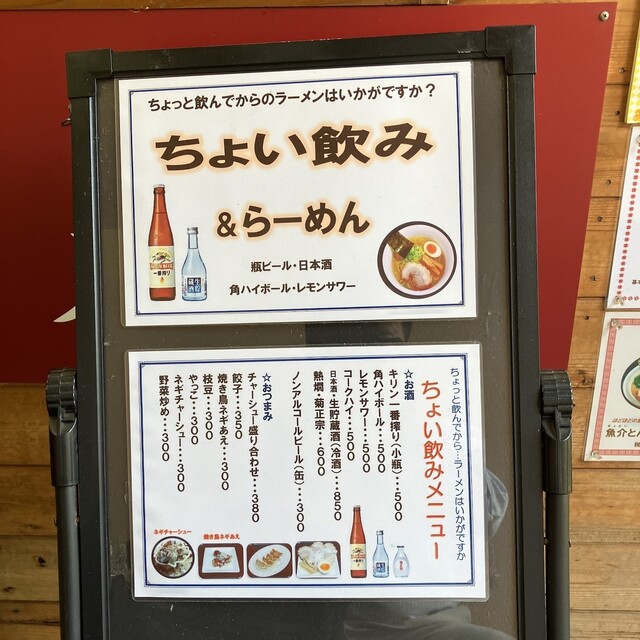 ちょっと飲んでからのラーメンはいかがですか?
ちょい飲み
&らーめん
瓶ビール・日本酒
角ハイボール・レモンサワー
一番搾り
生貯
蔵酒
ちょっと飲んでから…ラーメンはいかがですか
ちょい飲みメニュー
☆お酒
キリン一番搾り(小瓶)・・・500
角ハイボール・・・500
レモンサワー・・・500
コークハイ・・・500
日本酒・生貯蔵酒(冷酒)・・・850
熱燗・菊正宗・・・600
ノンアルコールビール(缶)・・・300
☆おつまみ
チャーシュー盛り合わせ・・・380
餃子・・・350
焼き鳥ネギあえ・・・300
枝豆・・・300
やっこ・・・300
ネギチャーシュー・・・300
野菜炒め・・・300
ネギチャーシュー
焼き鳥ネギあえ